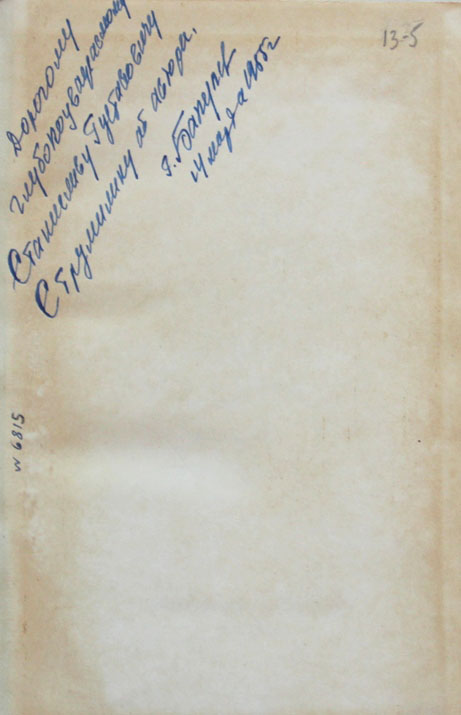 Дорогому
глубокоуважаемому
Станиславу Густавовичу
Струмилину от автора.
г.
марта 1955 г
13-5
N 6815